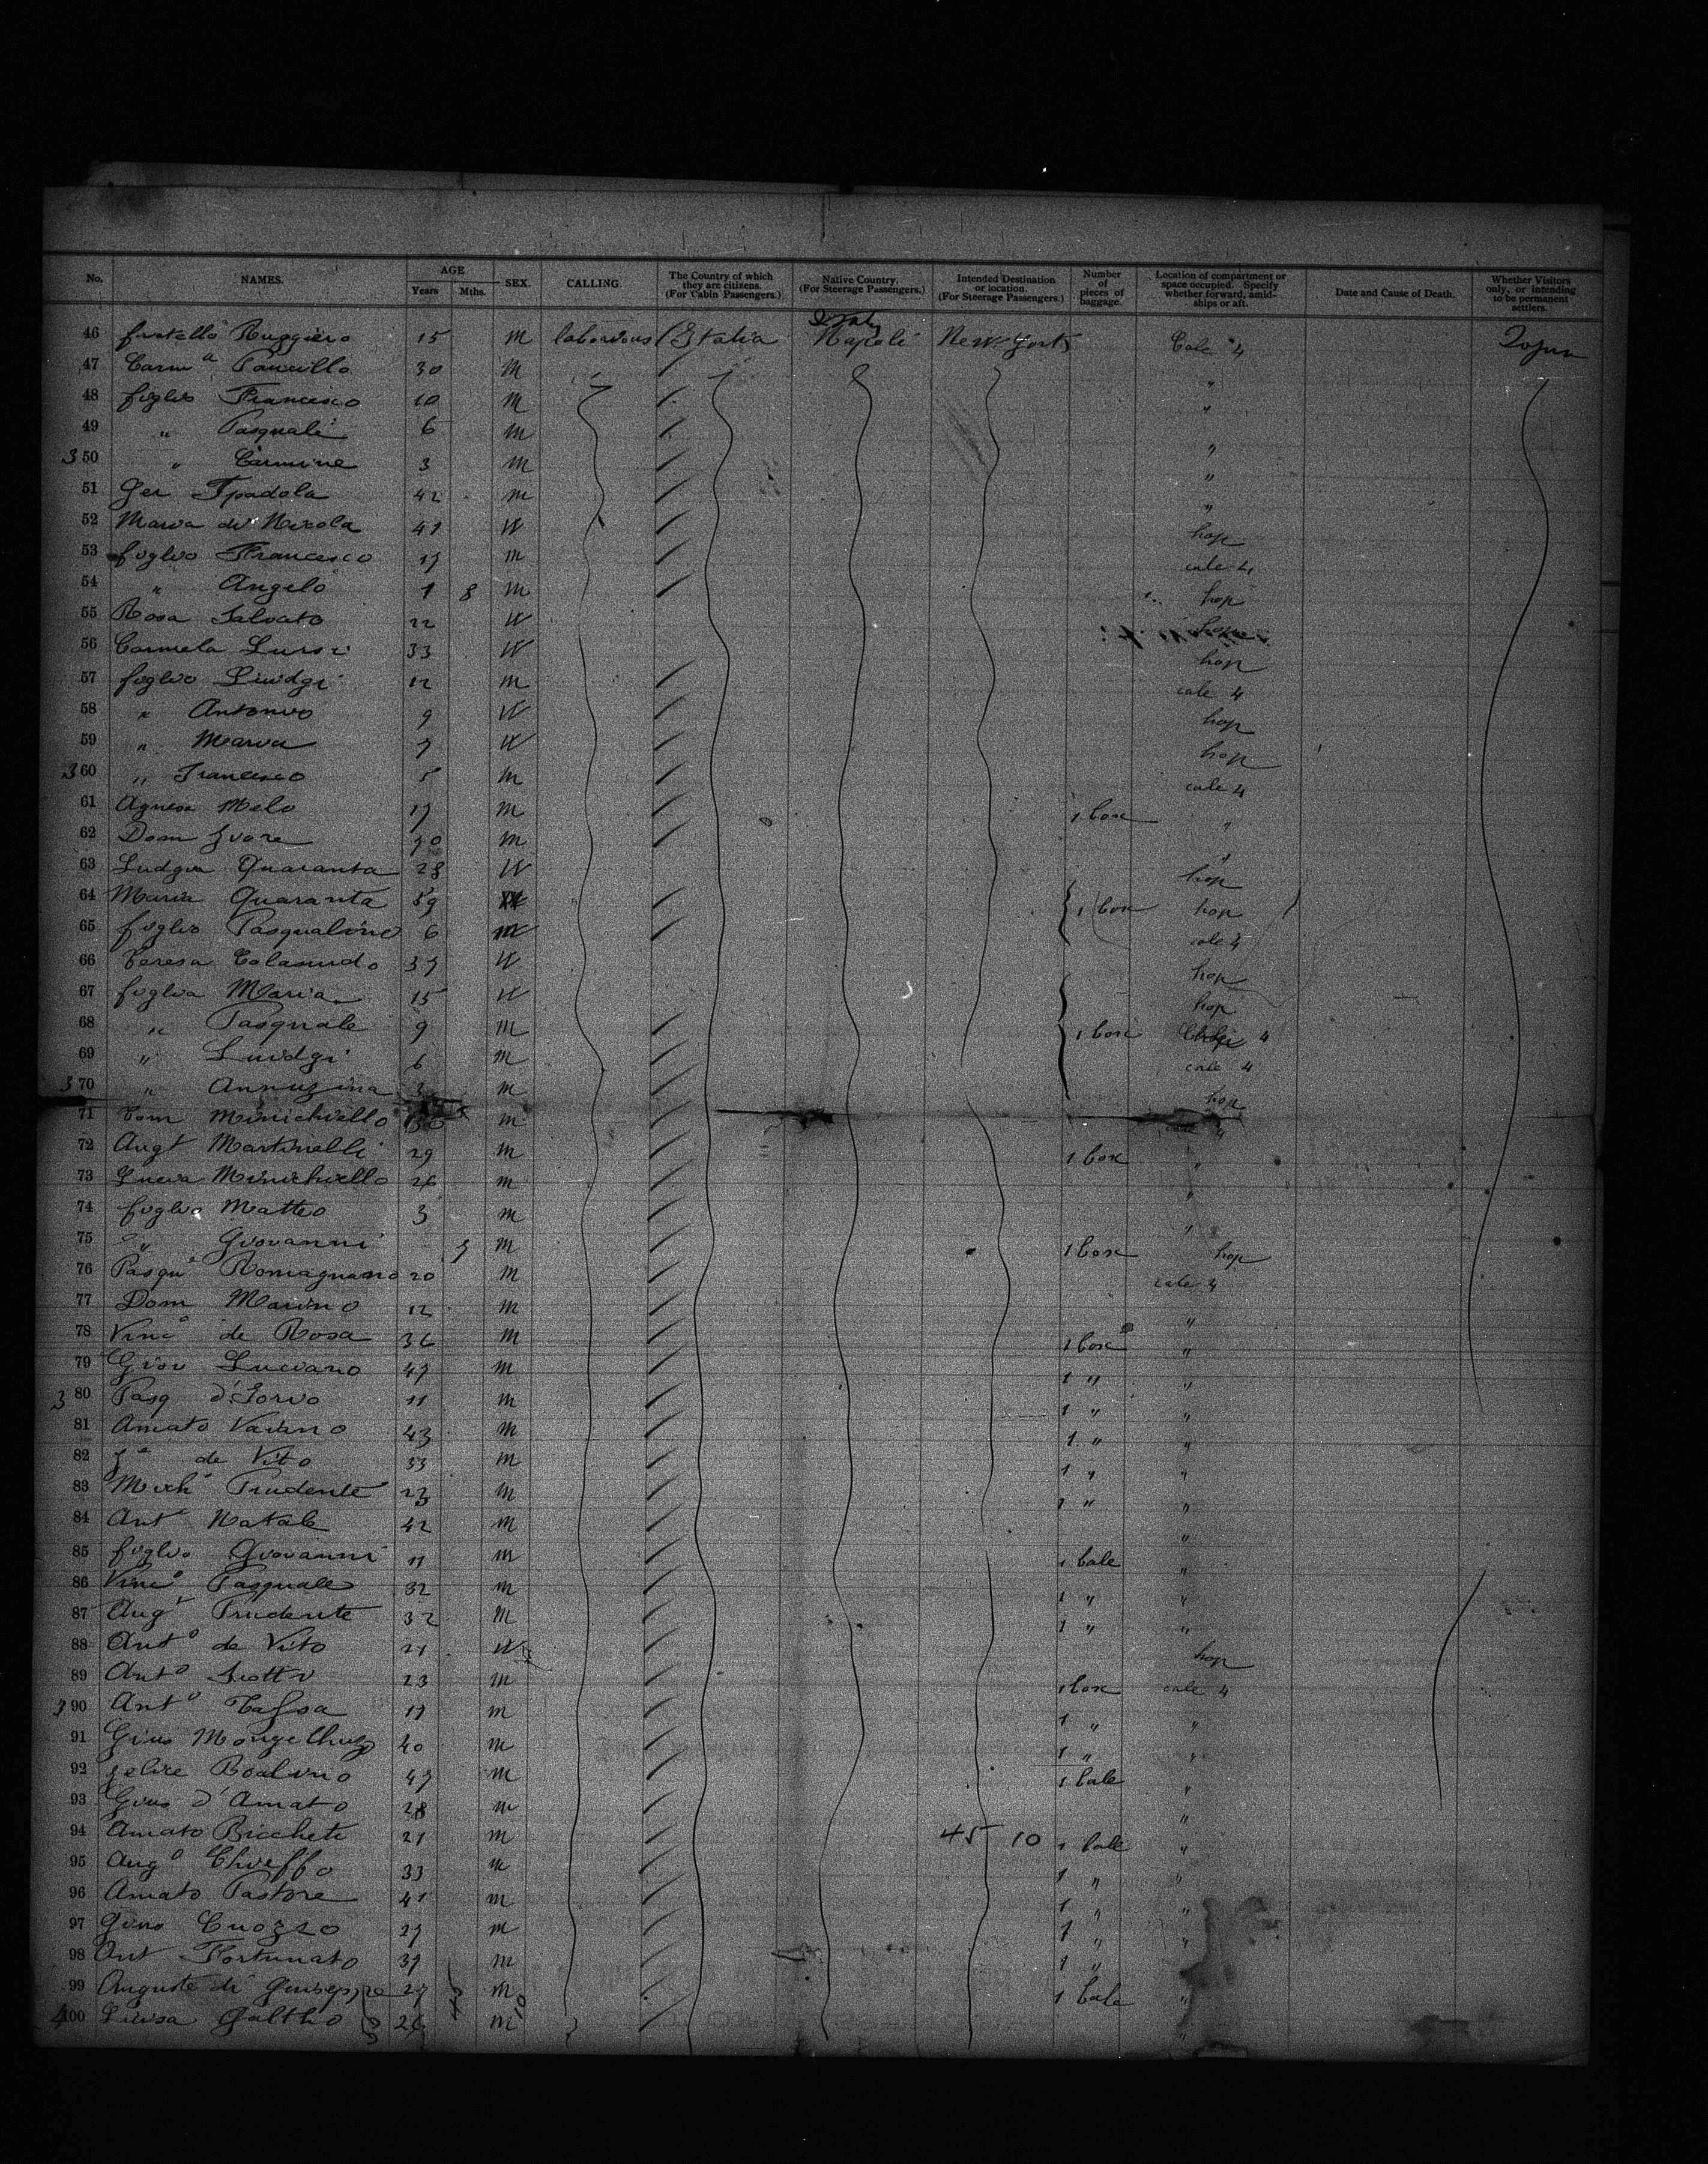 No. NAMES. AGE Years Mths. SEX. CALLING. The Country of which they are citizens. (For Cabin Passengers.) Native Country. (For Steerage Passengers.) Intended Destination or location. (For Steerage Passengers.) Number of pieces of baggage. Location of compartment or space occupied. Specify whether forward, amidships or aft. Date and Cause of Death. Whether Visitors only, or intending to be permanent settlers.
Italy
46 fratello Ruggiero 15 M Italia Napoli New York Cale 4
47 Carm a 30 M "
48 figlio Francesco 10 M "
49 " Pasquale 6 M "
350 " Carmine 3 M "
51 Ger Spadola 42 M "
52 Maria di Nicola 41 W hop
53 figlio Francesco M cale 4
54 " Angelo 1 8 M hop
55 Rosa Salvato 22 W
56 Carmela 33 W hop
57 figlio Luidgi 12 M cale 4
58 " Antonio 9 W hop
59 " Maria 7 W hop
360 " Francesco 5 M cale 4
61 Agnese Melo 17 M 1 box "
62 Dom M "
63 Quaranta 28 W hop
64 Maria Quaranta 59 1 box hop
65 figlio Pasqualino 6 cale 4
66 Teresa 37 W hop
67 figlia Maria 15 W hop
68 " Pasquale 9 M 1 box 4
69 " Luidgi 6 M cale 4
370 " 3 M hop
71 Minichiello M 4
72 Aug t Martinelli 29 M 1 box "
73 Minichiello 26 M "
74 figlio Matteo 3 M "
75 " Giovanni M 1 box hop
76 Pasqu e Romagnano 20 M cale 4
77 Dom Marino 12 M "
78 Vinc o de Rosa 36 M 1 box "
79 Giov Luciano 47 M 1 " "
380 Pasq 11 M 1 " "
81 Amato 43 M 1 " "
82 de Vito 33 M 1 " "
83 Mich e Prudente 23 M 1 " "
84 Ant Natale 42 M "
85 figlio Giovanni 11 M 1 bale "
86 Vinc o Pasquale 32 M 1 " "
87 Aug t Prudente 32 M 1 " "
88 Ant o de Vito 21 W hop
89 Ant o 23 M 1 box cale 4
390 Ant o 17 M 1 " "
91 Gius 40 M 1 " "
92 Felice 47 M 1 bale "
93 Gius d'Amato 28 M "
94 Amato Biccheti 21 M 45 10 1 bale "
95 Ang o Chieffo 33 M 1 " "
96 Amato Pastore 41 M 1 " "
97 Gius Cuozzo 27 M 1 " "
98 Ant Fortunato 37 M 1 "
99 Auguste di Giuseppe 27 M 1 bale "
400 Luisa 26 M "
45 10